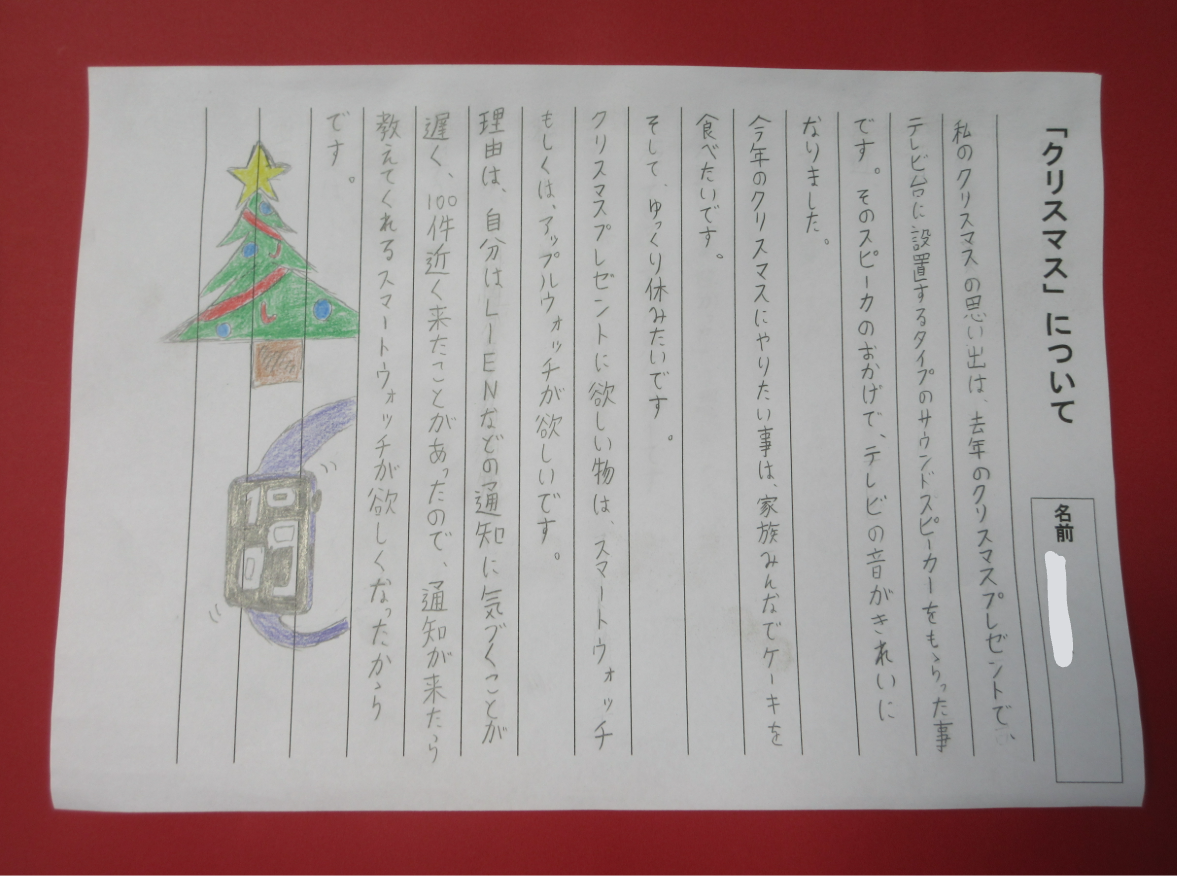 「クリスマス」について
名前
私のクリスマスの思い出は、去年のクリスマスプレゼントで、
テレビ台に設置するタイプのサウンドスピーカーをもらった事
です。そのスピーカのおかげで、テレビの音がきれいに
なりました。
今年のクリスマスにやりたい事は、家族みんなでケーキを
食べたいです。
そして、ゆっくり休みたいです。
クリスマスプレゼントに欲しい物は、スマートウォッチ
もしくは、アップルウォッチが欲しいです。
理由は、自分はLIENなどの通知に気づくことが
遅く、100件近く来たことがあったので、通知が来たら
教えてくれるスマートウォッチが欲しくなったから
です。